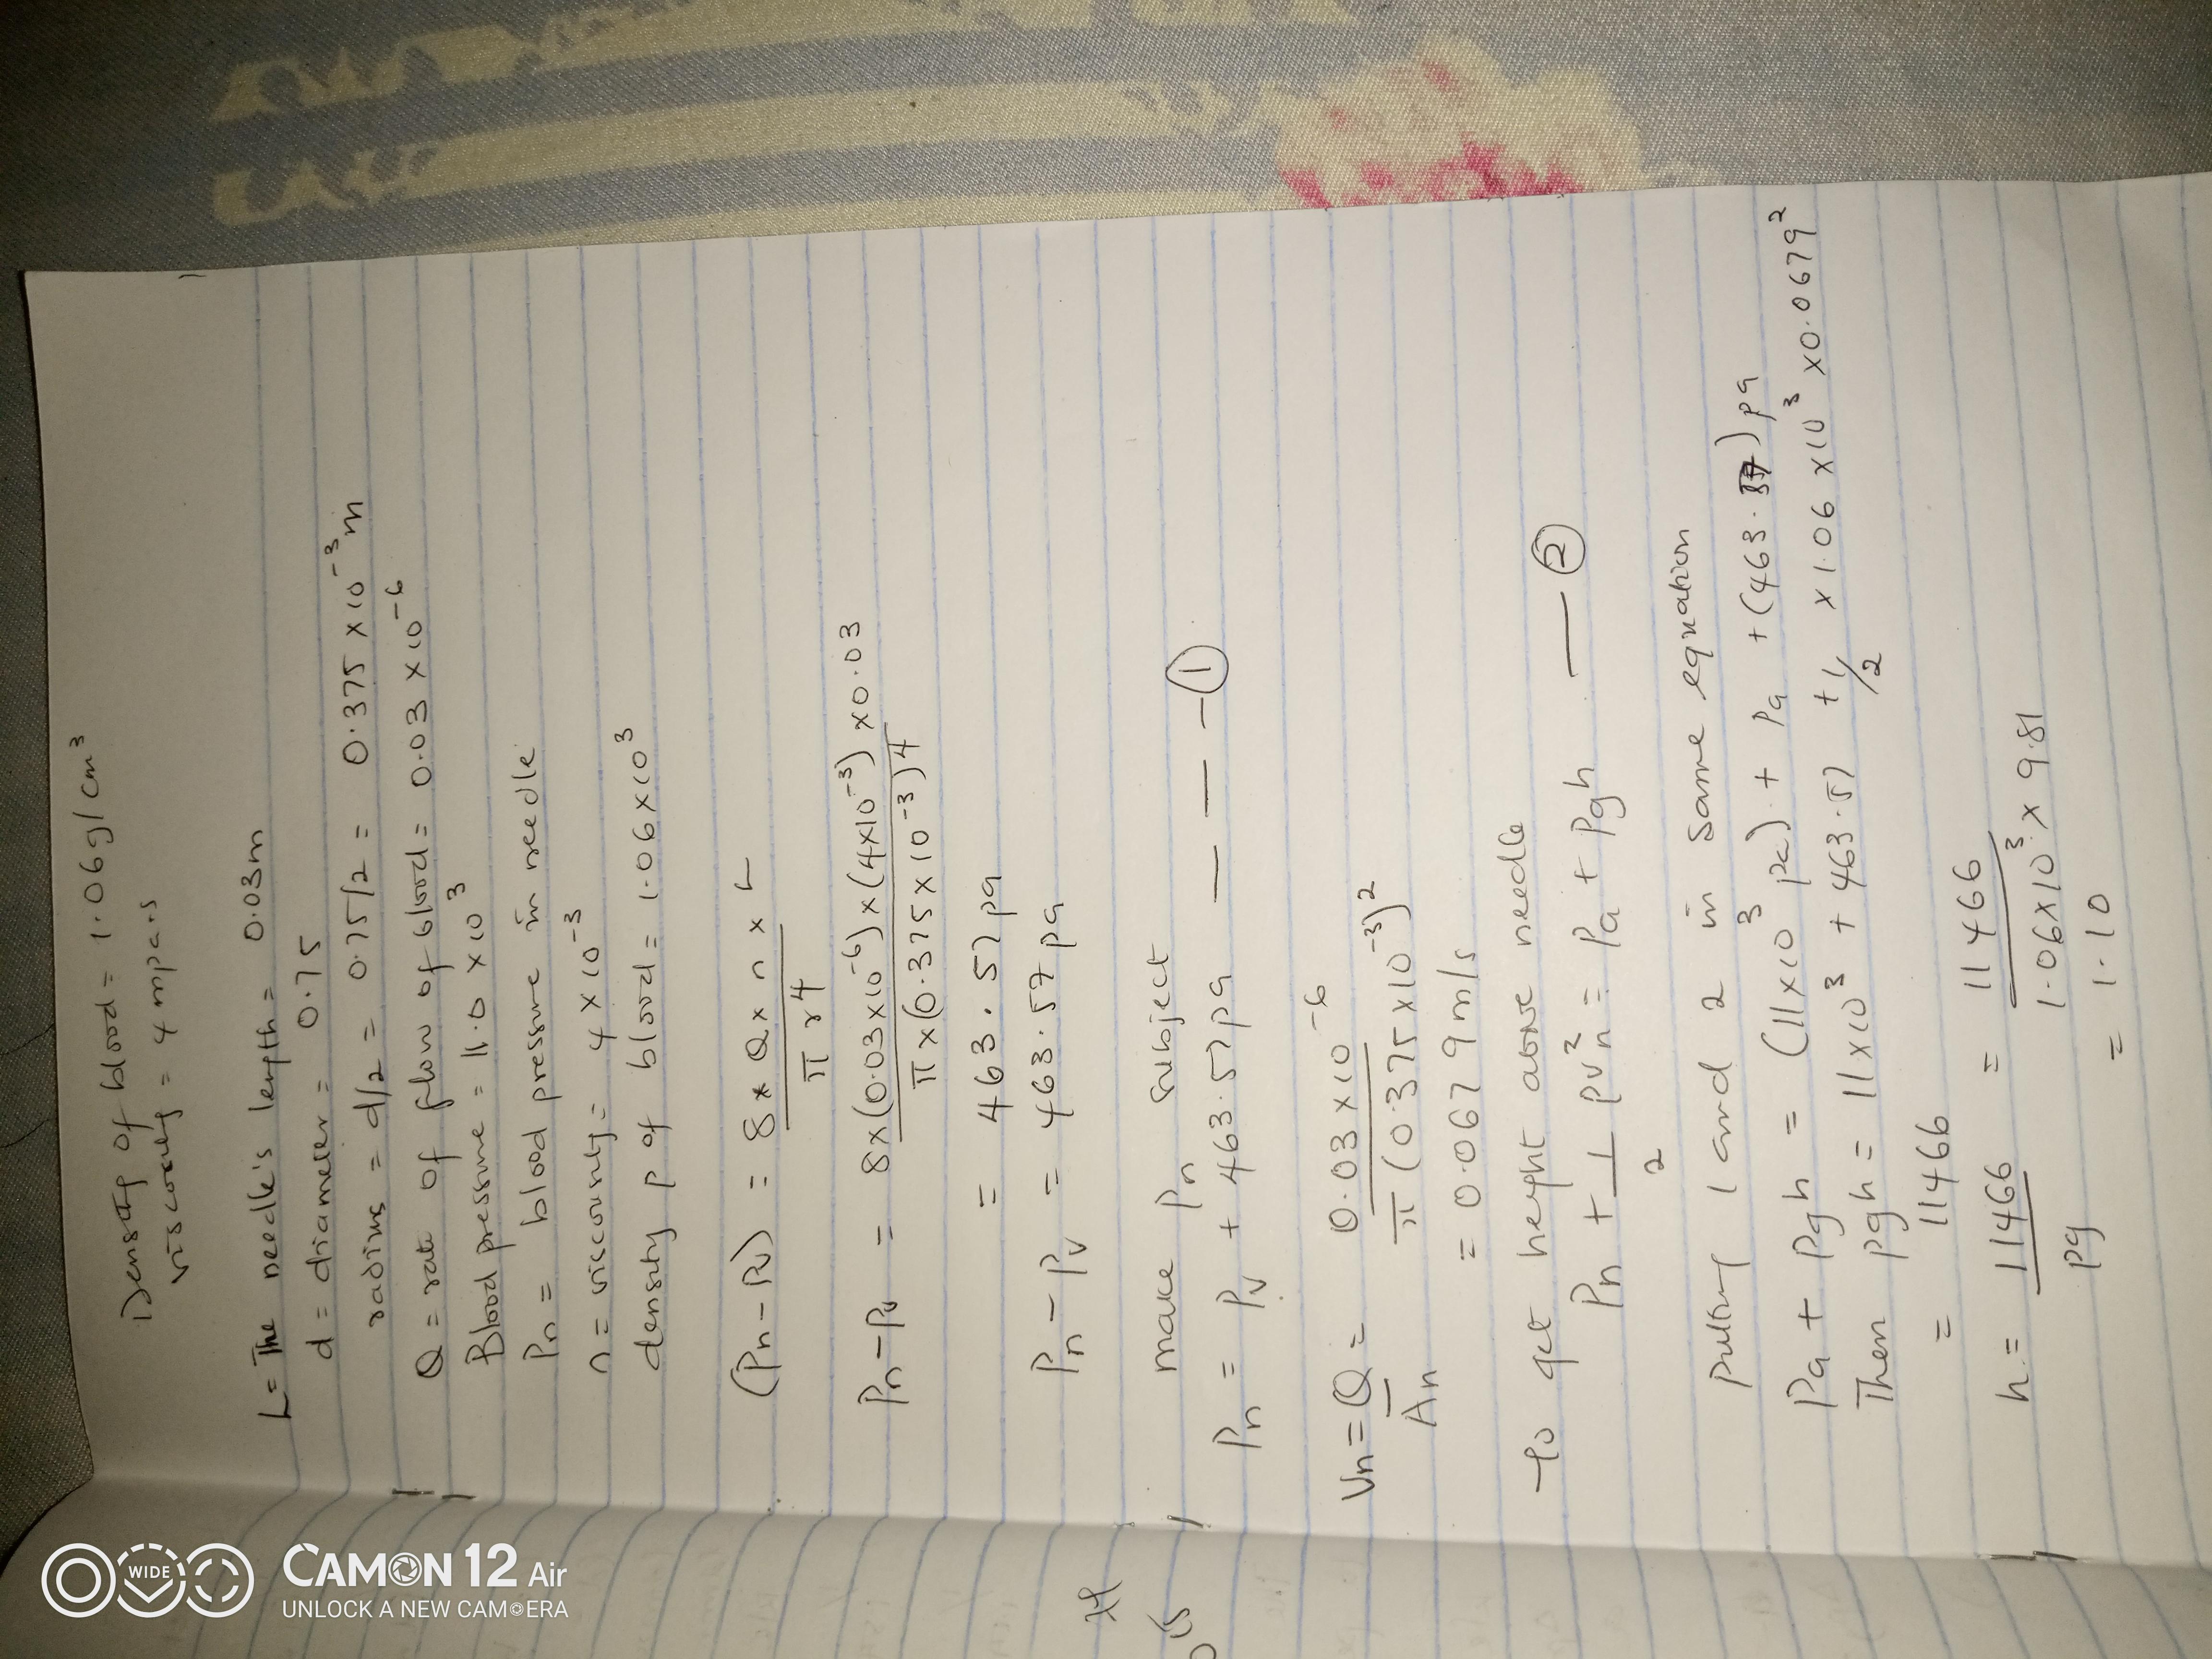 Density of blood = 1.06g/cm³
viscosity = 4 mpa.s
L = The needle's length = 0.03m
d = diameter = 0.75
radius = d/2 = 0.75/2 = 0.375 x 10⁻³ m
Q = rate of flow of blood = 0.03 x 10⁻⁶
Blood pressure = 11.0 x 10³
Pn = blood pressure in needle
n = viscosity = 4 x 10⁻³
density p of blood = 1.06x10³
(Pn - Pv) = 8 x Q x n x L
π r4
Pn - Pv = 8x(0.03x10⁻⁶)x(4x10⁻³) x0.03
π x(0.375x10⁻³)4
= 463.57 pa
Pn - Pv = 463.57 pa
make Pn subject
Pn = Pv + 463.57pa — — - ①
Vn = Q = 0.03 x10⁻⁶
An π (0.375x10⁻³)²
= 0.0679 m/s
To get height above needle
Pn + 1 pv²n = Pa + Pgh — ②
2
putting 1 and 2 in same equation
Pa + Pgh = (11x10³ pa) + Pa + (463.57) pa
Then pgh = 11x10³ + 463.57 + 1/2 x 1.06 x10³ x0.0679²
= 11466
h = 11466 = 11466
pg 1.06x10³ x 9.81
= 1.10
WIDE
CAMON 12 Air
UNLOCK A NEW CAMERA